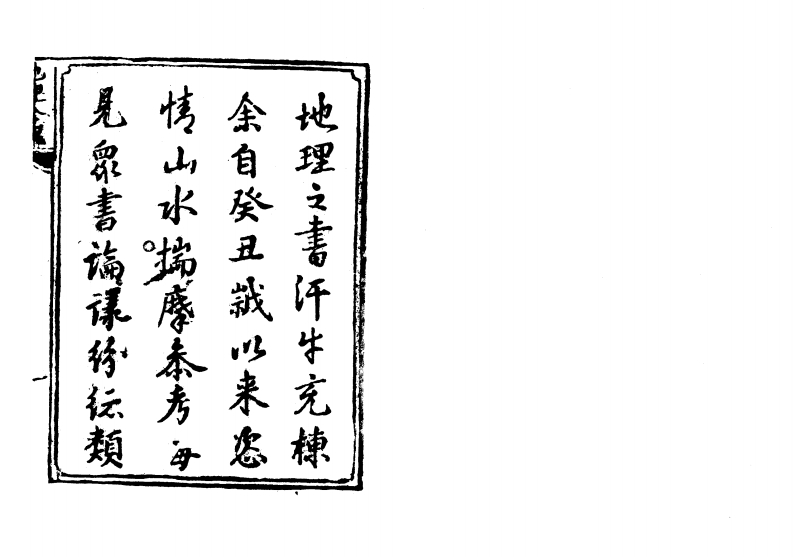 地理之書汗牛充棟
余自癸丑歲以来恣
情山水揣摩叅考每
見眾書論議紛紜類